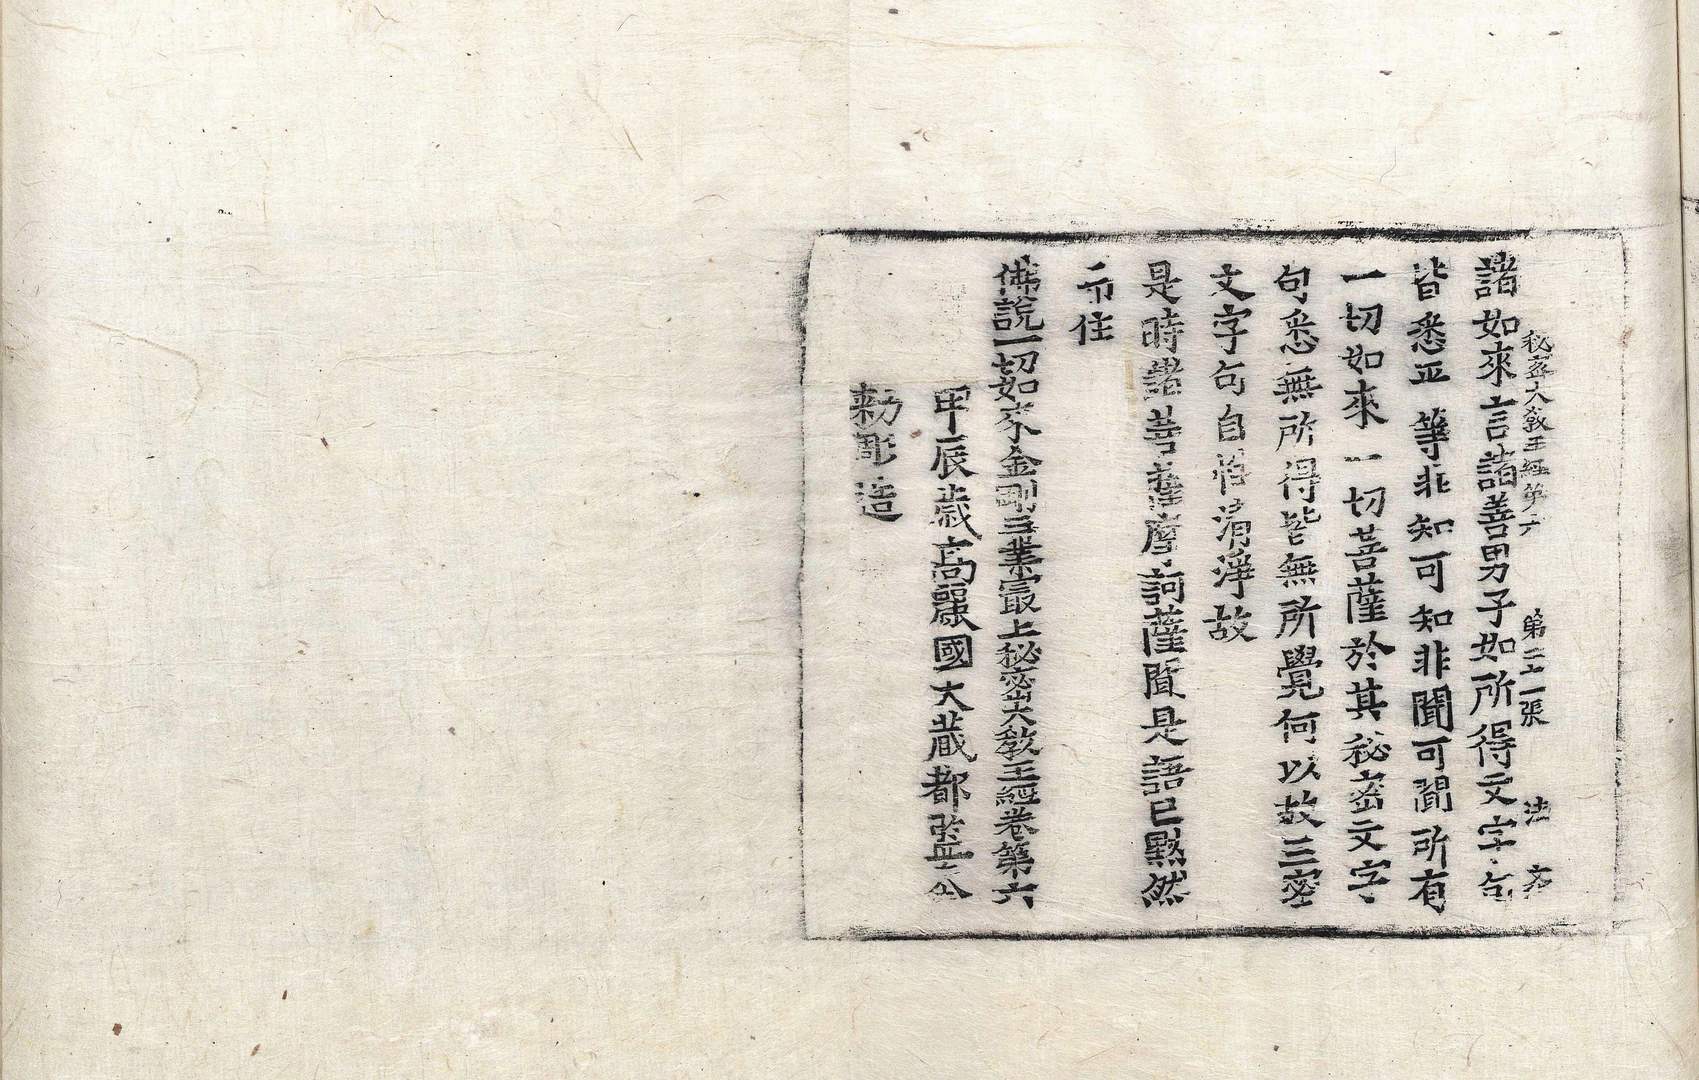 秘密大教王經第六 第二十一張 法
諸如來言諸善男子如所得文字句
皆悉平等非知可知非聞可聞所有
一切如來一切菩薩於其秘密文字
句悉無所得皆無所覺何以故三密
文字句自性清淨故
是時諸菩薩摩訶薩聞是語已默然
而住
佛說一切如來金剛三業最上秘密大教王經卷第六
甲辰歲高麗國大藏都監奉
勅彫造